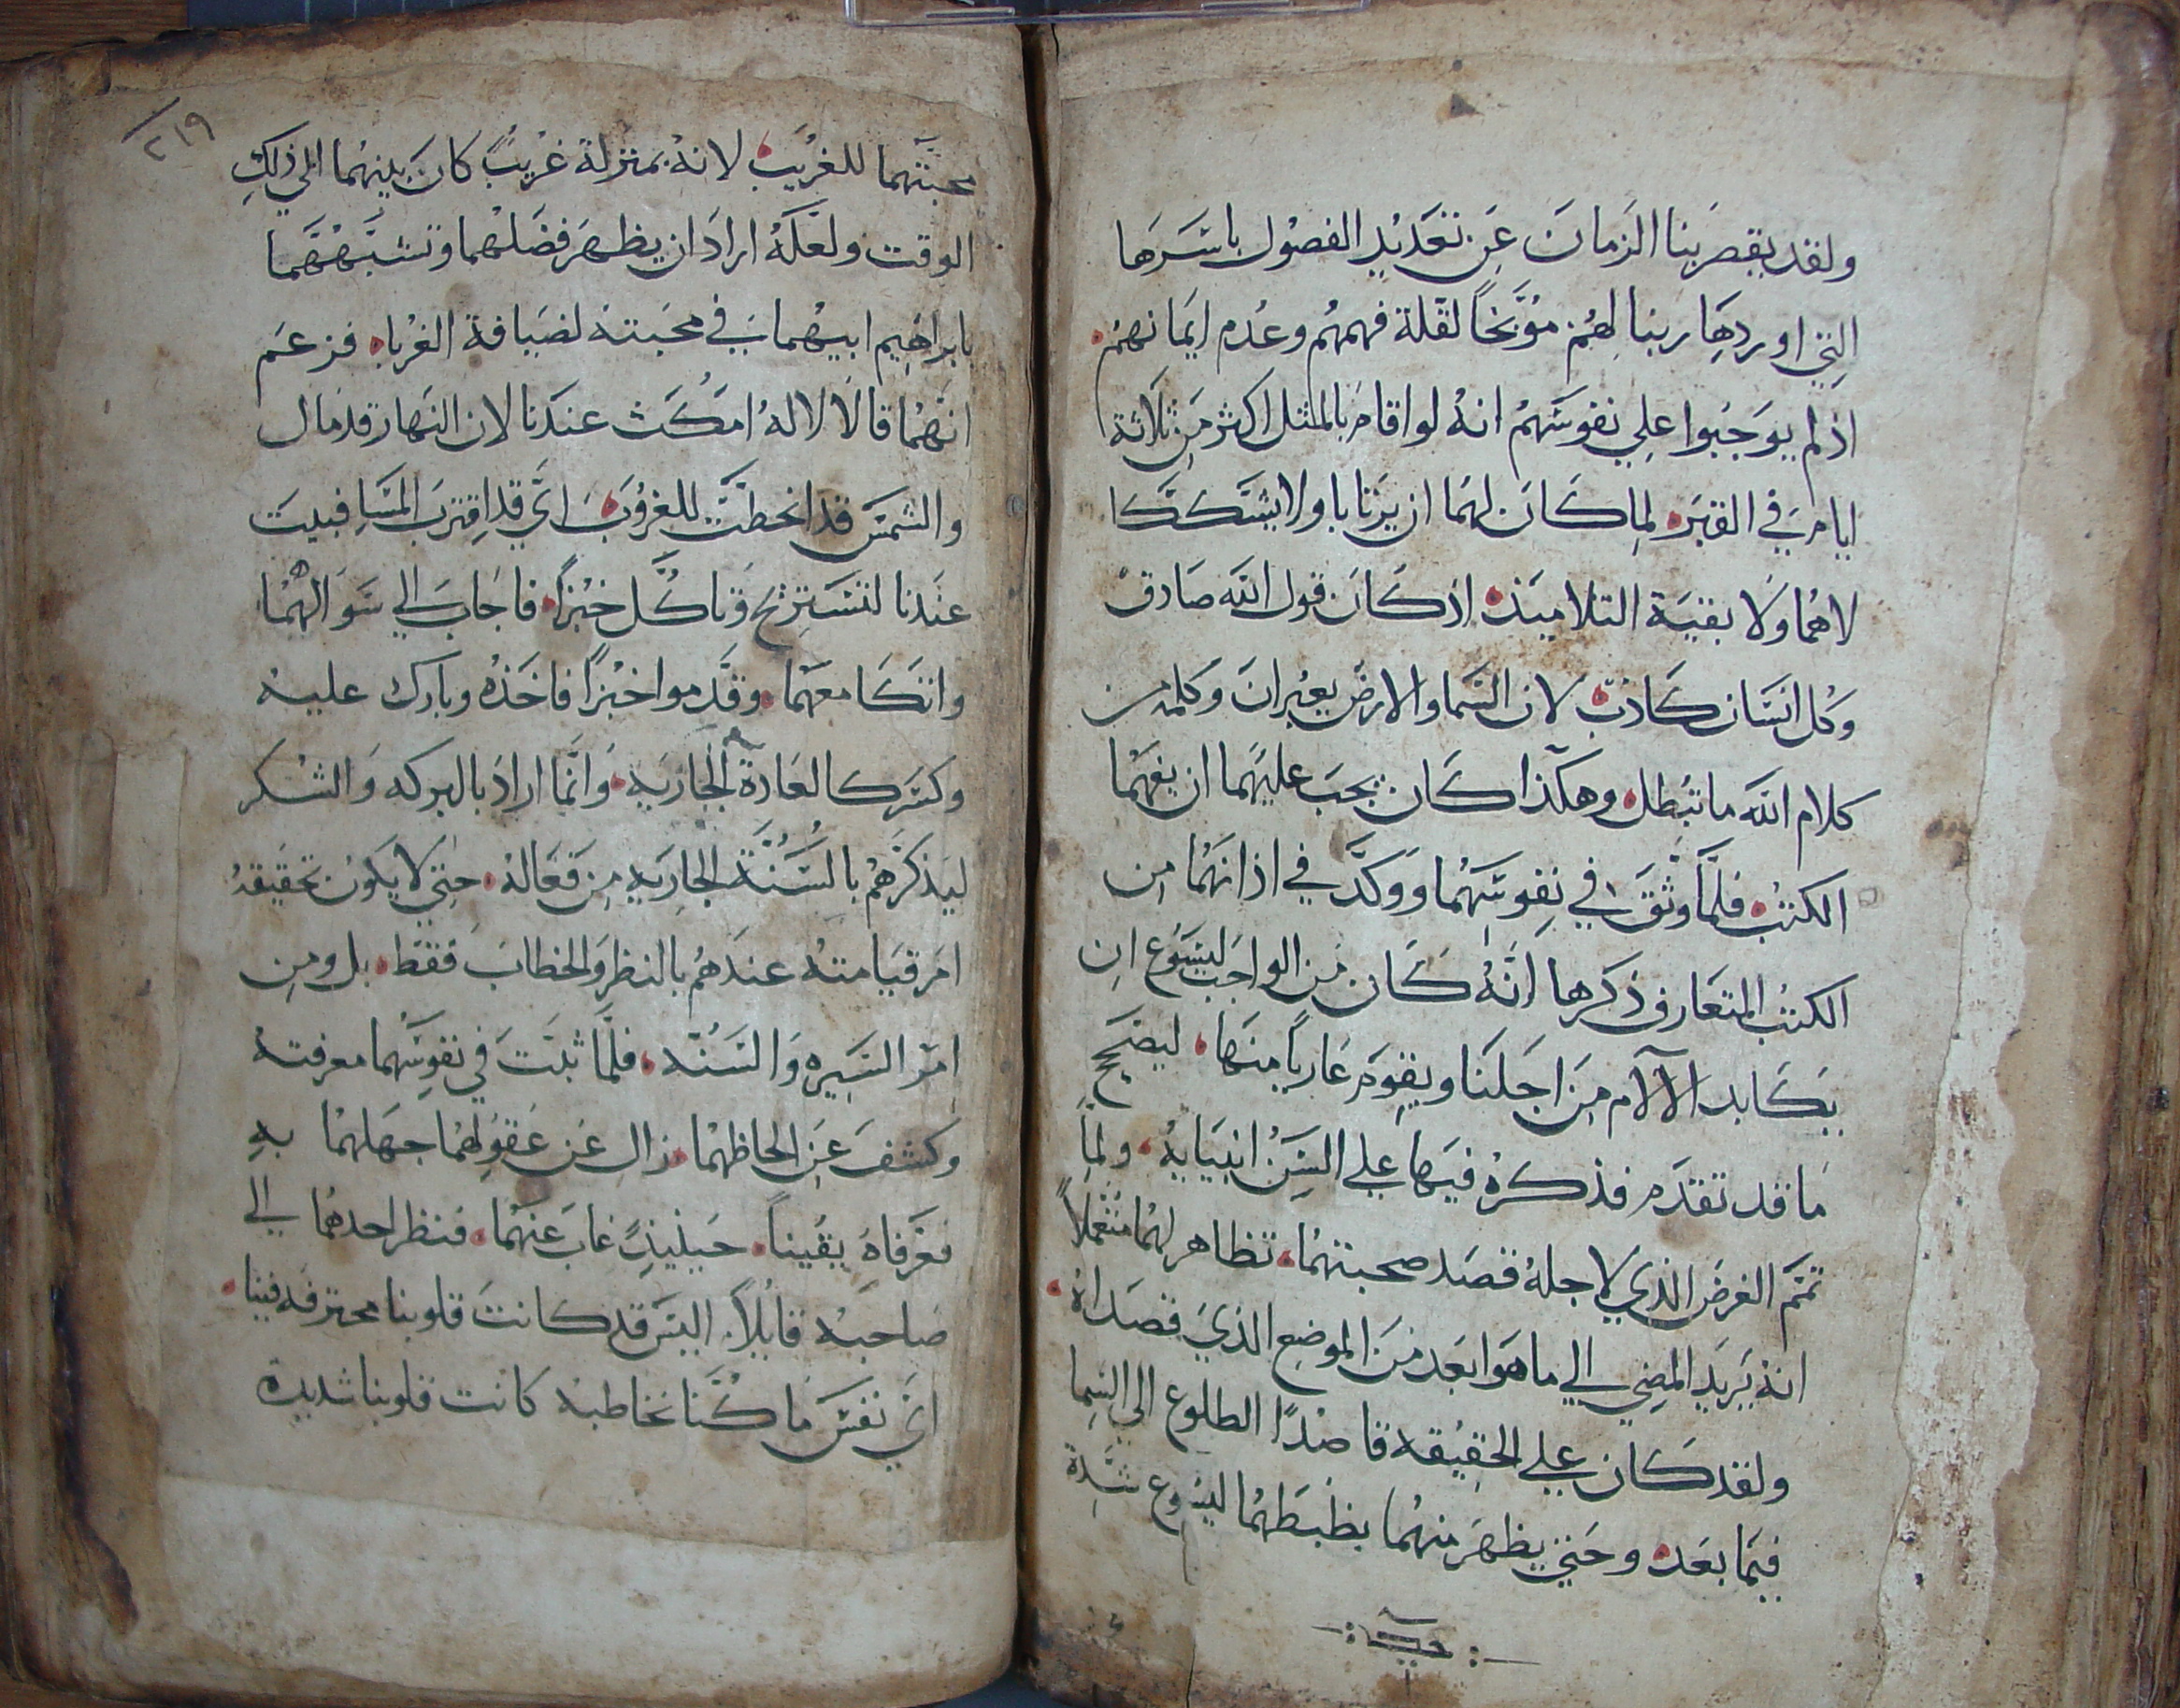 ولقد يقصر بنا الزمان عن تعديد الفصول باسرها
التي اوردها ربنا لهم موبخاً لقلة فهمهم وعدم ايمانهم
اذ لم يوجبوا علي نفوسهم انه لو اقام بالمثل اكثر من ثلاثة
ايام في القبر لما كان لهما ان يرتابا ولا يشككا
لاهما ولا بقية التلاميذ اذ كان قول الله صادق
وكل انسان كاذب لان السما والارض يعبران وكلمه من
كلام الله ما تبطل وهكذا كان يجب عليهما ان يفهما
الكتب فلما وثق في نفوسهما ووكد في اذانهما من
الكتب المتعارف ذكرها انه كان من الواجب ليسوع ان
يكابد الآلام من اجلنا ويقوم عارياً منها ليصح
ما قد تقدم فذكره فيها علي السن انبيايه ولما
تمم الغرض الذي لاجله قصد صحبتهما تظاهر لهما متعملاً
انه يريد المضي الي ما هو ابعد من الموضع الذي قصداه
ولقد كان علي الحقيقه قاصداً الطلوع الي السما
فيما بعد وحتي يظهر منهما بظبطهما ليسوع شدة
٢١٩
محبتهما للغريب لانه بمنزلة غريب كان بينهما الي ذلك
الوقت ولعله اراد ان يظهر فضلهما وتشبههما
بابراهيم ابيهما في محبته لضيافة الغربا فزعم
انهما قالا لاله امكث عندنا لان النهار قد مال
والشمس قد انحطت للغروب اي قد اقترب المسا فبيت
عندنا لتستريح وتاكل خبزا فاجاب الي سوالهما
واتكا معهما وقدموا خبزا فاخذه وبارك عليه
وكسر كالعادة الجاريه وانما اراد بالبركه والشكر
ليذكرهم بالسنة الجاريه من فعاله حتي لا يكون تحقيقه
امر قيامته عندهم بالنظر والخطاب فقط بل ومن
امر السيره والسنه فلما ثبت في نفوسهما معرفته
وكشف عن الحاظهما زال عن عقولهما جهلهما به
فعرفاه يقيناً حينيذٍ غاب عنهما فنظر احدهما الي
صاحبه قايلاً اليس قد كانت قلوبنا محترقه فينا
اي نفس ما كنا نخاطبه كانت قلوبنا شديدة